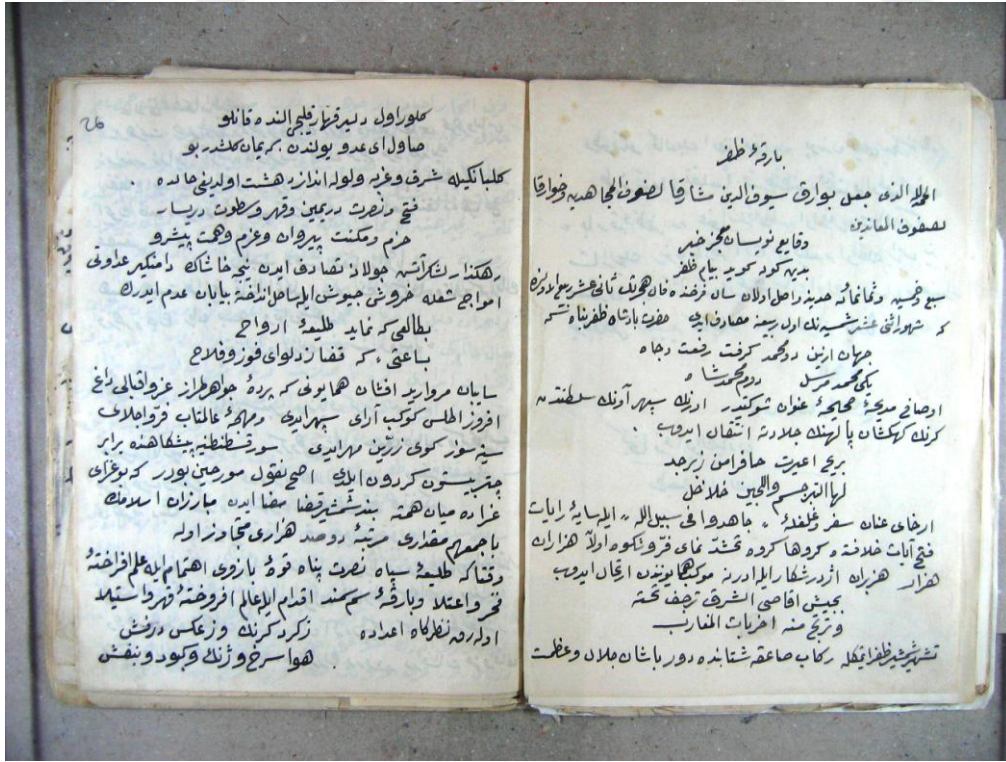 بارقهٔ ظفر
الحمد لله الذی جعل بوارق سیوف الدین مشارقا لصفوف المجاهدین و خوارقا
لصفوف المعاندین
وقایع نویسان معجز خبر
بدین كونه تحریر پیام ظفر
سبع و خمسین و ثمانمائه هدینه داخل اولان سال فرخنده فال هجرتك ثانی عشر ربیع الاولنده
كه شهور اثنی عشر شمسیه نك اول ربیعنه مصادف ایدی حضرت پادشاه ظفرپناه
جهان ازین دو محمد كرفت رفعت و جاه
یكی محمد مرسل دوم محمد شاه
اوصافی مدیحهٔ صحیحهٔ عنوان شوكتیدر ادرنك سپهر آونك سلطنتدن
كرنك كهكشان پالهنك جلادته انتقال ایدوب
بریح اعیرت حافرا من زبرجد
لها التبر جسم واللجین خلاخل
ارخای عنان سفر و غلغلهٔ جاهدوا فی سبیل الله ایله سایهٔ رایات
فتح آیات خلافته و كروها كروه تحشد نمای فر و شكوه اولان هزاران
هزار هزبران اژدرشكار ایله ادرنه موكب همایوندن ارتحال ایدوب
بجیش اقاصی الشرق ترجف تحته
و ترتج منه اخریات المغارب
تشهیر شمشیر ظفر ایتمكله ركاب صاعقه شتابنده دورباشان جلال و عظمت
٢٦
كلور اول دلیر قهار قلیجی النده قانلو
صاول ای عدو یولندن كریمان كلشدر بو
كلبانكیله شرق و غربه ولوله انداز دهشت اولدیغی حالده
فتح و نصرت در یمین و قهر و سطوت در یسار
حزم و مكنت پیروان و عزم و همت پیشرو
رهكذار لشكر آتشین جولاننه تصادف ایدن نیجه خاشاك دامنكیر عداوتی
امواج شعله خروش جیوش ایله ساحل انداختهٔ بیابان عدم ایدرك
بطالعی كه نماید طلیعهٔ ارواح
بساعتی كه قضا زد لوای فوز و فلاح
سایبان مروارید افشان همایونی كه پردهٔ جواهر طراز عز و اقبالی داغ
افروز اطلس كوكب آرای سپهر ایدی و مهچهٔ عالمتاب فر و اجلالی
سینه سوز كوی زرین مهر ایدی سور قسطنطنیه پیشكاهنده برابر
چتر بیستون كردون ایلدی اصح نقول مورخین بودر كه بو غزای
غراده میان همته بند شمشیر قضا مضا ایدن مبارزان اسلامك
باجمعهم مقداری مرتبهٔ دوصد هزاری متجاوز اوله
وقتاكه طلیعهٔ سپاه نصرت پناه قوهٔ بازوی اهتمام ایله علم افراختهٔ
فخر و اعتلا و بارقهٔ سم سمند اقدام ایله عالم افروختهٔ قهر و استیلا
اوله رق نظركاه اعداده زكرد كرنك و ز عكس درفش
هوا سرخ و زنك و كبود و بنفش